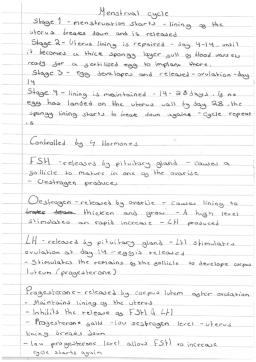 Menstrual cycle
Stage 1 - menstruation starts - lining of the
uterus breaks down and is released
Stage 2 - Uterus lining is repaired - day 4-14 until
it becomes a thick spongy layer full of blood vessels
ready for a fertilized egg to implant there.
Stage 3 - egg developes and released - ovulation - day
14
Stage 4 - lining is maintained - 14 - 28 days. if no
egg has landed on the uterus wall by day 28. the
spongy lining starts to break down again - cycle repeat
s
Controlled by 4 Hormones
FSH - released by pituitary gland - causes a
follicle to mature in one of the ovaries
- Oestrogen produced
Oestrogen - released by ovaries - causes lining to
thicken and grow - A high level
stimulates an rapid increase - LH produced
LH - released by pituitary gland - LH stimulates
ovulation at day 14 - egg is released
- Stimulates the remains of the follicle to develope corpus
luteum (progesterone)
Progesterone - released by corpus luteum after ovulation
- Maintains lining of the uterus
- Inhibits the release of FSH & LH
- Progesterone falls - low oestrogen level - uterus
lining breaks down
- low progesterone level allows FSH to increase
cycle starts again